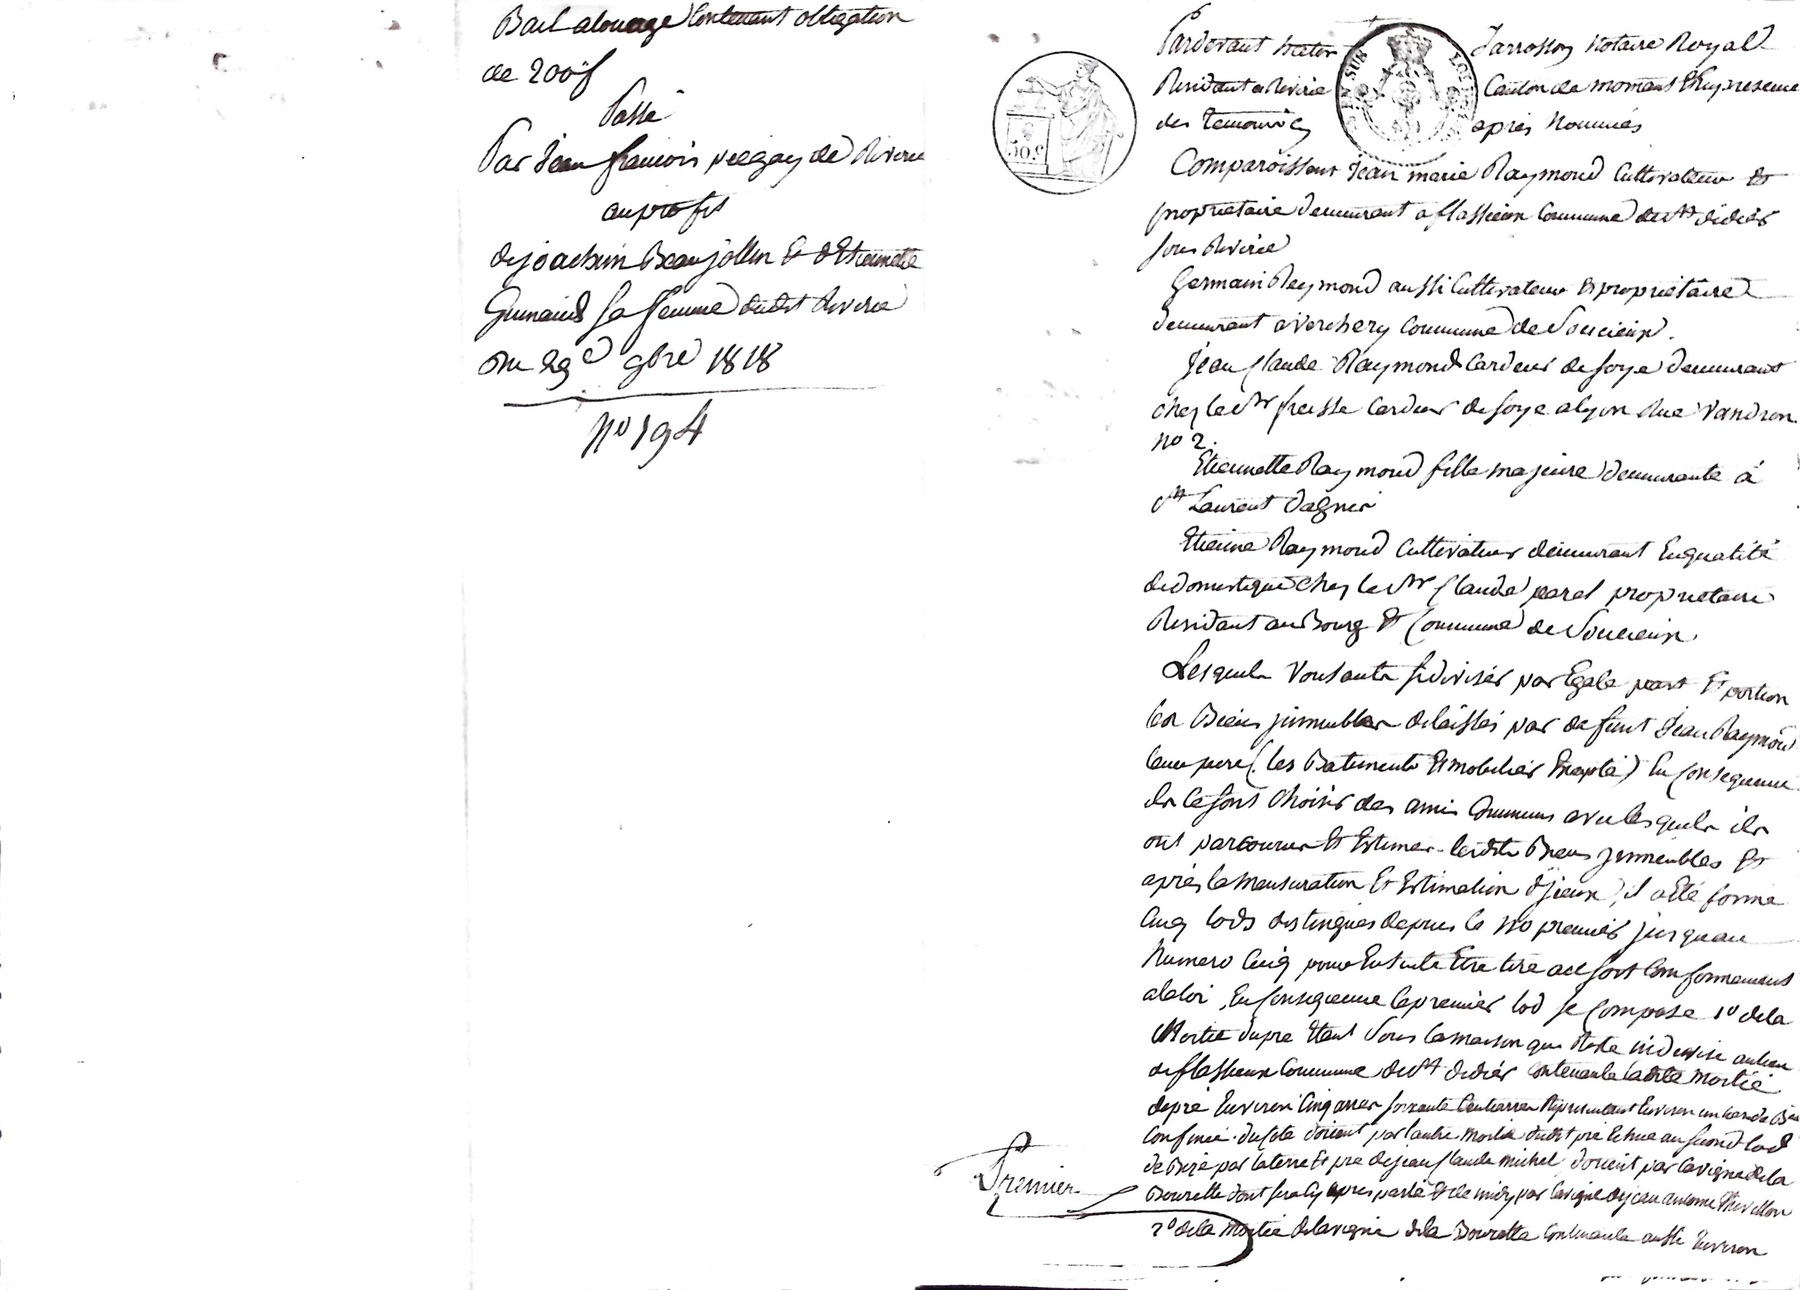 Bail alouage Contenant obligation
de 200f
Passé
Par Jean françois pelgay de Riverie
au profit
de joachim Beaujollin Et d'Etiennette
Guinand sa femme dudit Riverie
Du 29e 9bre 1818
No 194
Pardevant Jarrosson Notaire Royal
Residant a Riverie Canton de mornant Et en presence
des temoins apres Nommés
50 c
Comparoissent Jean marie Raymond Cultivateur Et
proprietaire demeurant a flassieux Commune de st didier
sous Riverie
Germain Raymond aussi Cultivateur Et proprietaire
demeurant a verchery Commune de Soucieux.
Jean Claude Raymond Cardeur de soye demeurant
chez le sr freisse Cardeur de soye a lyon Rue Vandran
no 2.
Etiennette Raymond fille majeure demeurante à
st Laurent dagnis
Etienne Raymond Cultivateur demeurant En qualité
de domestique chez le sr Claude parel propriétaire
Residant au Bourg Et Commune de Soucieux.
Lesquels Voulants se diviser par Egale part Et portion
les Biens jmmeubles delaissés par defunt Jean Raymond
leur pere (les Batiments Et mobilier Exepté) En Consequence
ils se sont choisis des amis Communs avec lesquels ils
ont parcourus Et Estimer lesdits Biens jmmeubles Et
après la mensuration Et Estimation d'jceux, il a Eté formé
Cinq lods distingués depuis le no premier jusquau
Numero Cinq pour Ensuite Etre tiré au sort Conformement
a la loi, En Consequence le premier lod se Compose 1o de la
Moitié du pré Etant Sous la maison qui Reste indivise au lieu
de flassieux Commune de st didier Contenante ladite Moitié
de pré Environ Cinq ares soixante Centiares Representant Environ
Confinée du Coté dorient par lautre Moitié dudit pré Echue au second lod
de Bize par la terre Et pré de jean Claude michel, par la vigne de la
Bourette dont sera Cy apres parlé Et de midy par la vigne de jean antoine
2o de la Moitié de la vigne de la Bourette Contenante aussi Environ
Premier